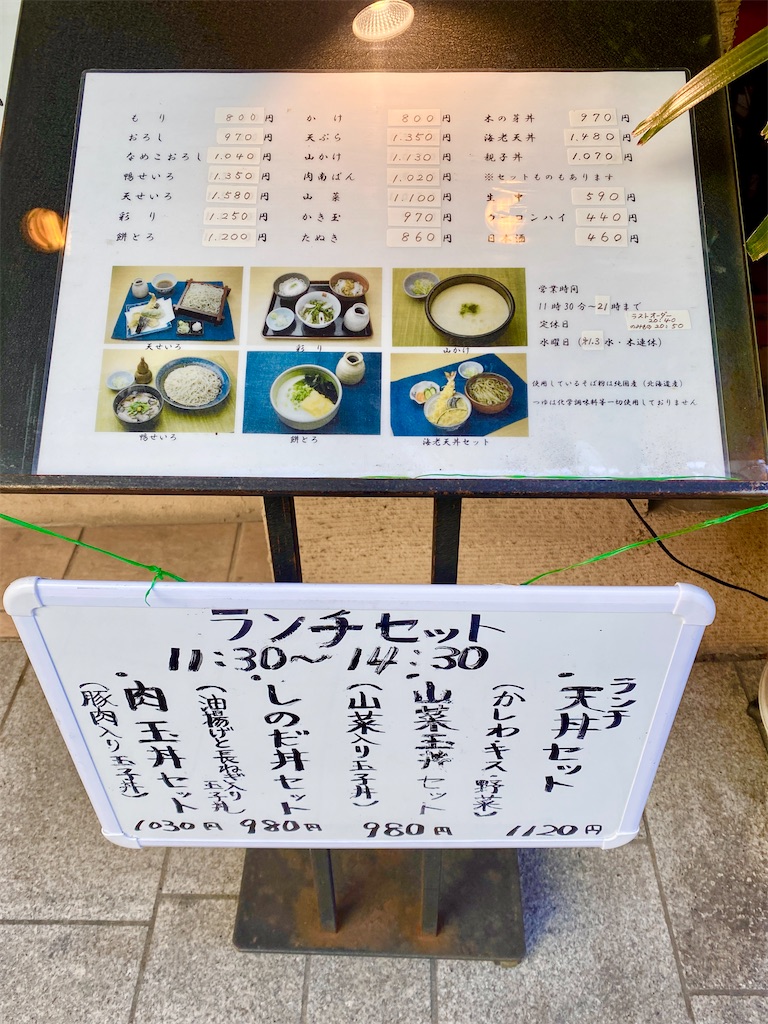 もり 800円
おろし 970円
なめこおろし 1.040円
鴨せいろ 1.350円
天せいろ 1.580円
彩り 1.250円
餅とろ 1.200円
かけ 800円
天ぷら 1.350円
山かけ 1.130円
肉南ばん 1.020円
山菜 1.100円
かき玉 970円
たぬき 860円
木の芽丼 970円
海老天丼 1.480円
親子丼 1.070円
※セットものもあります
生中 590円
ウーロンハイ 440円
日本酒 460円
天せいろ
彩り
山かけ
鴨せいろ
餅とろ
海老天丼セット
営業時間
11時30分〜21時まで
ラストオーダー
20:40
20:50
定休日
水曜日(第1.3 水・木連休)
使用しているそば粉は純国産(北海道産)
つゆは化学調味料等一切使用しておりません
ランチセット
11:30〜14:30
ランチ
・天丼セット
(かしわ・キス・野菜)
1120円
・山菜玉丼セット
(山菜入り玉子丼)
980円
・しのだ丼セット
(油揚げと長ねぎ入り
玉子丼)
980円
・肉玉丼セット
(豚肉入り玉子丼)
1030円